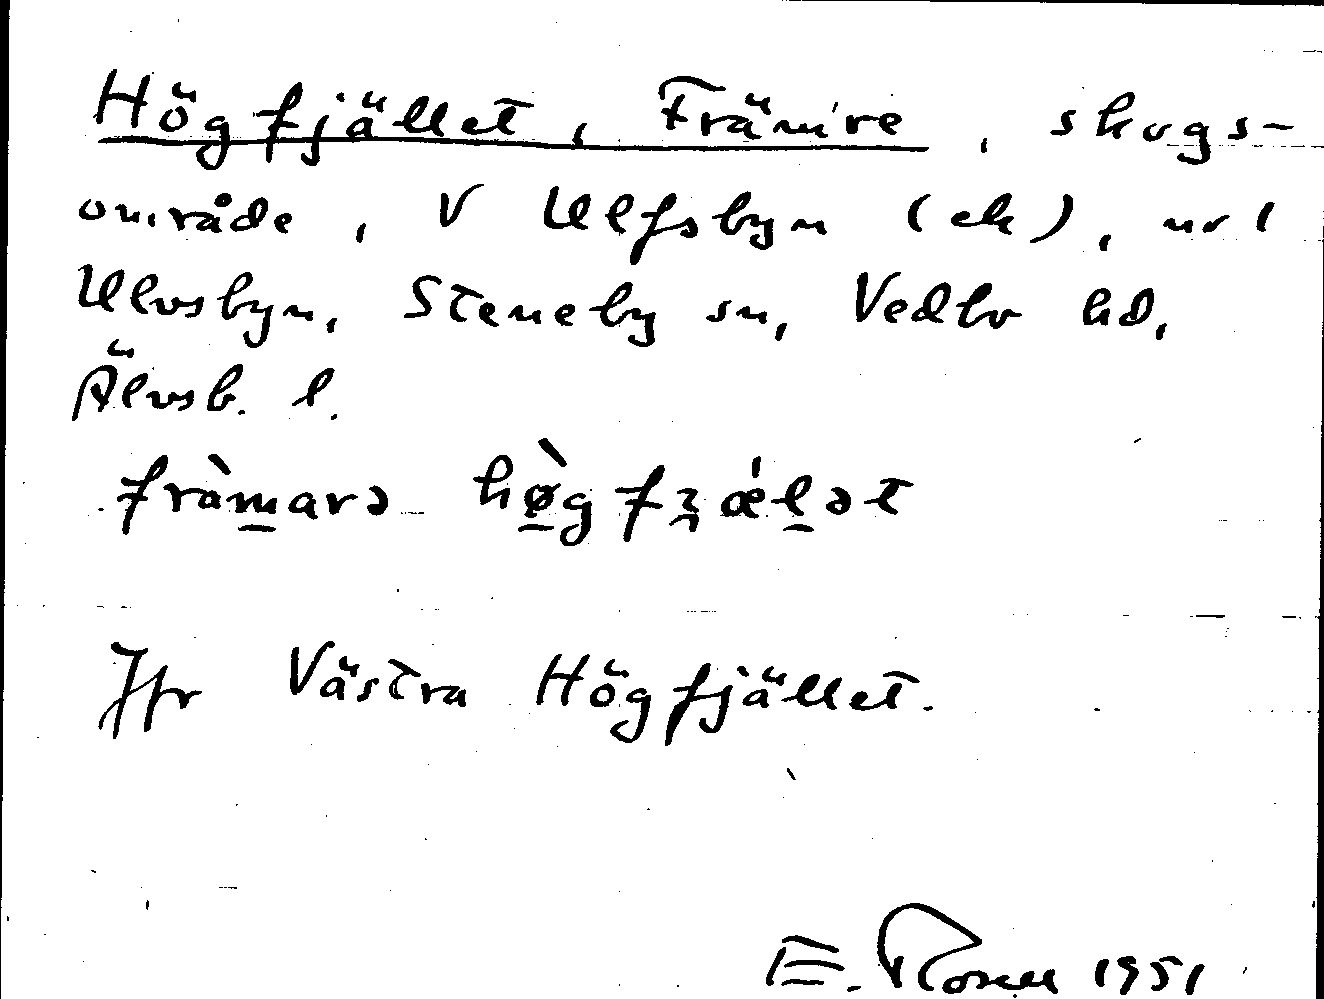 Högfjället, Främre, skogs-
område, V Ulfsbyn (ek), nr 1
Ulvsbyn, Steneby sn, Vedbo hd,
Älvsb. l.
fràmarə hø̀gfʒǽlət
Jfr Västra Högfjället.
E. 1951